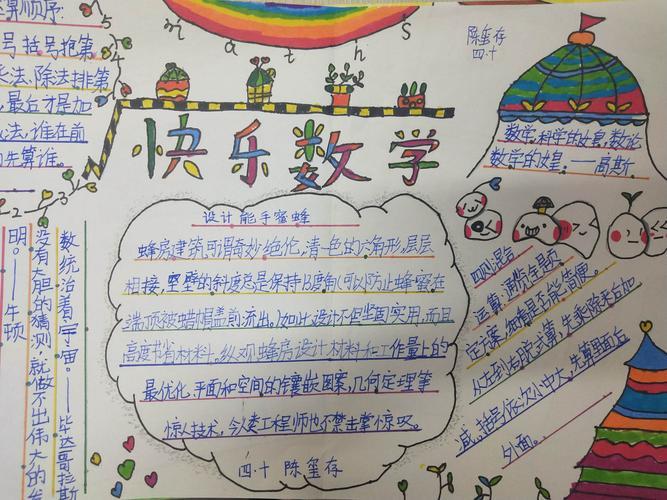 算顺序
号括号抢第
乘法、除法排第
最后才是加
法,谁在前
先算谁。
maths
陈玺存
四、十
快乐数学
数学,科学的女皇,数论
数学的女皇 ——高斯
设计能手蜜蜂
蜂房建筑可谓奇妙绝伦,清一色的六角形,层层
相接,室壁的斜度总是保持13度角(可以防止蜂蜜在
端顶被蜡帽盖前流出。)如此设计不但坚固实用,而且
高度节省材料。纵观蜂房设计材料和工作量上的
最优化,平面和空间的镶嵌图案,几何定理等
惊人技术,令人类工程师也不禁击掌惊叹。
四、十 陈玺存
四则混合
运算,通览全题
定方案,细看是不能简便。
从左到右脱式算,先乘除来后加
减,括号依次小中大,先算里面后
外面。
数统治着宇宙。——毕达哥拉斯
没有大胆的猜测,就做不出伟大的发
明。——牛顿